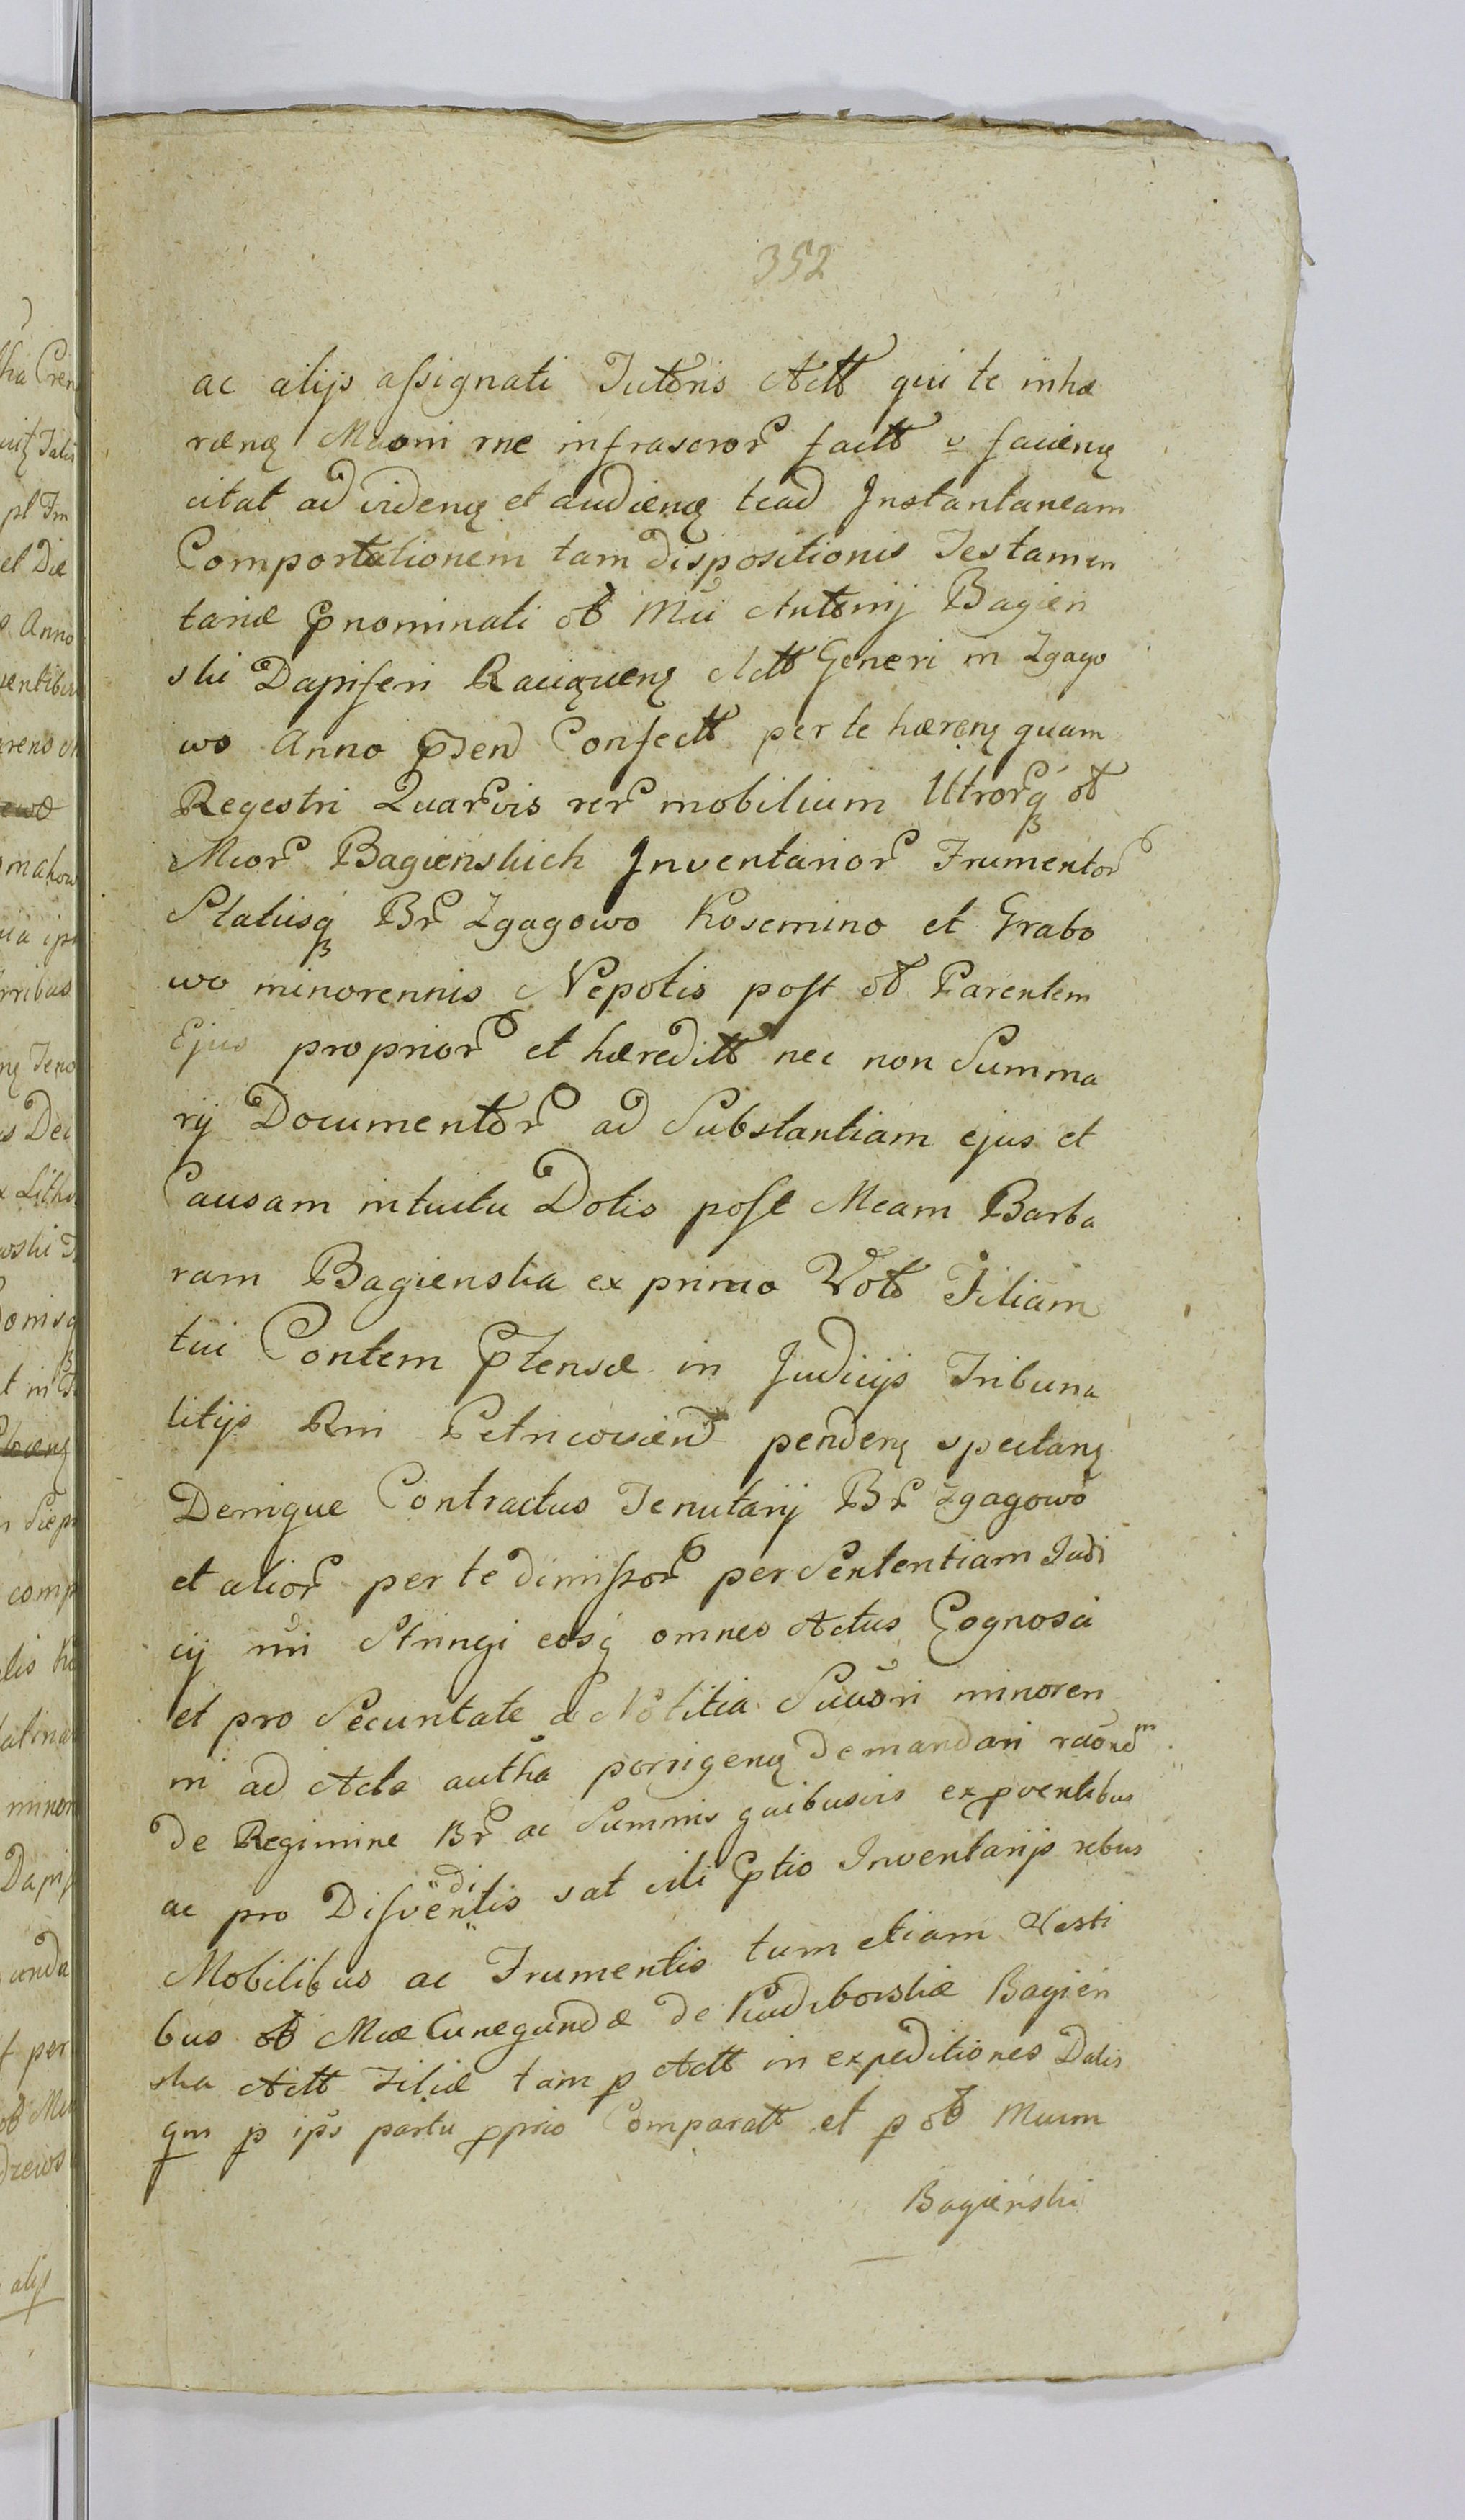 352
ac alijs assignati Tutoris Actt qui te inhæ
rænꝫ Muoni rne infrascror factt v faciænꝫ
citat ad videnꝫ et audienꝫ te ad Instantaneam
Comportationem tam dispositionis Testamen
tariæ Pnominati ob Mci Antonij Bagien
ski Dapiferi Actt Generi in Zgago
wo Anno Confectt per te hærenꝫ quam
Regestri Quarvis rer mobilium Utrorq ob
Mcor Bagienskich Inventarior Frumentor
Statusq Br Zgagowo Kosemino et Grabo
wo minorennis Nepotis post ob Parentem
Ejus proprior et hæreditt nec non Summa
rij Documentor ad Substantiam ejus et
Causam intuitu Dotis post Mcam Barba
ram Bagienska ex primo Voto Filiam
tui Contem Ptensæ in Judicijs Tribuna
litijs Rni Petricovien pendenꝫ spectanꝫ
Denique Contractus Tenutarij Br Zgagowo
et alior per te dimissor per Sententiam Judi
cij nri Stringi eosq omnes Actus Cognosci
et pro Securitate ac Notitia Succōri minoren
ni ad Acta autha porrigenꝫ demandari
de Regimine Br ac Summis quibusvis ex pventibus
ac pro Disven di tis sat Ptio Inventarijs rebus
Mobilibus ac Frumentis tum etiam Vesti
bus ob Mcæ Cunegundæ de Bagień
ska Actt Filiæ tam p Actt in expeditiones Datis
qm p ips partu pprio Comparatt et p ob Mcum
Bagieński